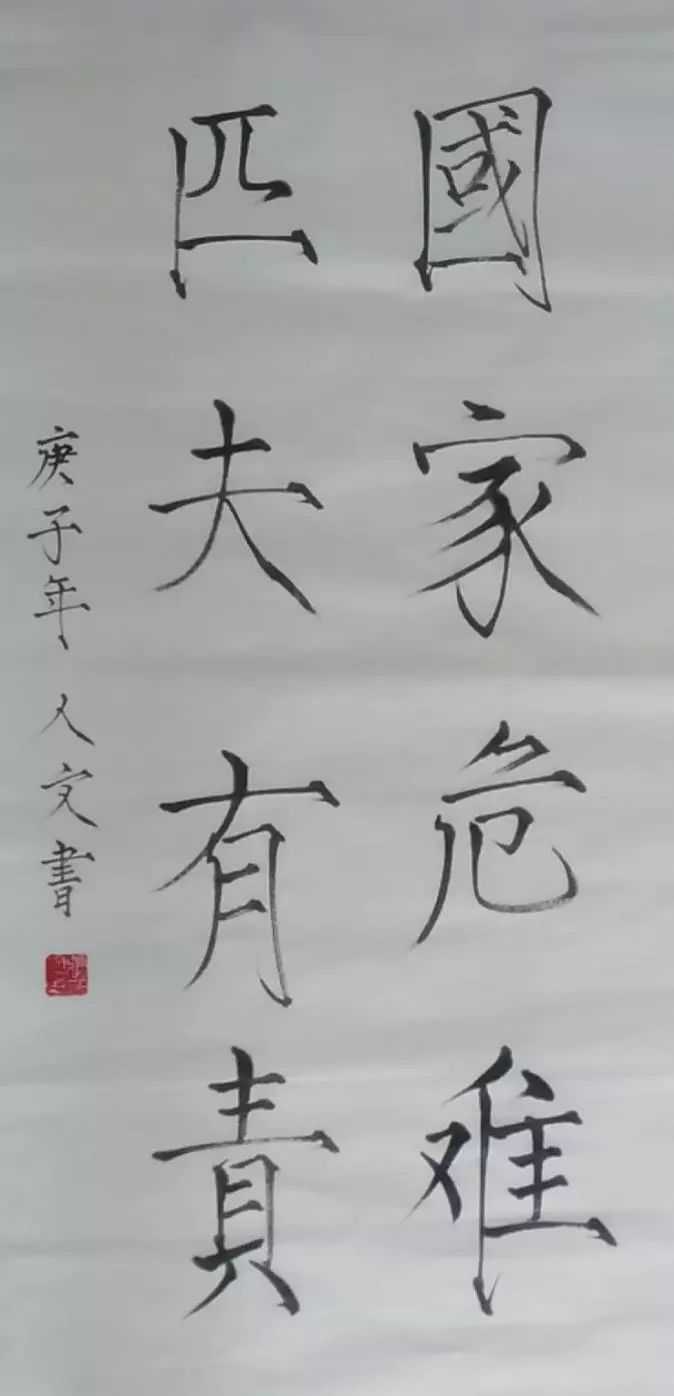 國家危难
匹夫有責
庚子年 人文書